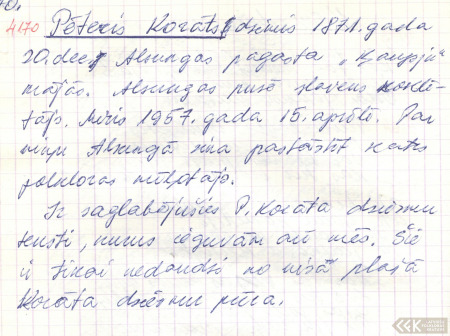 4170 Pēteris Korāts dzimis 1871. gada
20. dec. Alsungas pagasta „Ķaupju"
mājās. Alsungas pusē slavens
tājs. Miris 1957. gada 15. aprīlī. Par
viņu Alsungā zina pastāstīt katrs
folkloras mīļotājs.
Ir saglabājušies P. Korāta dziesmu
teksti, kurus ieguvām arī mēs. Šie
ir tikai nedaudzi no visa plašā
Korāta dziesmu pūra.